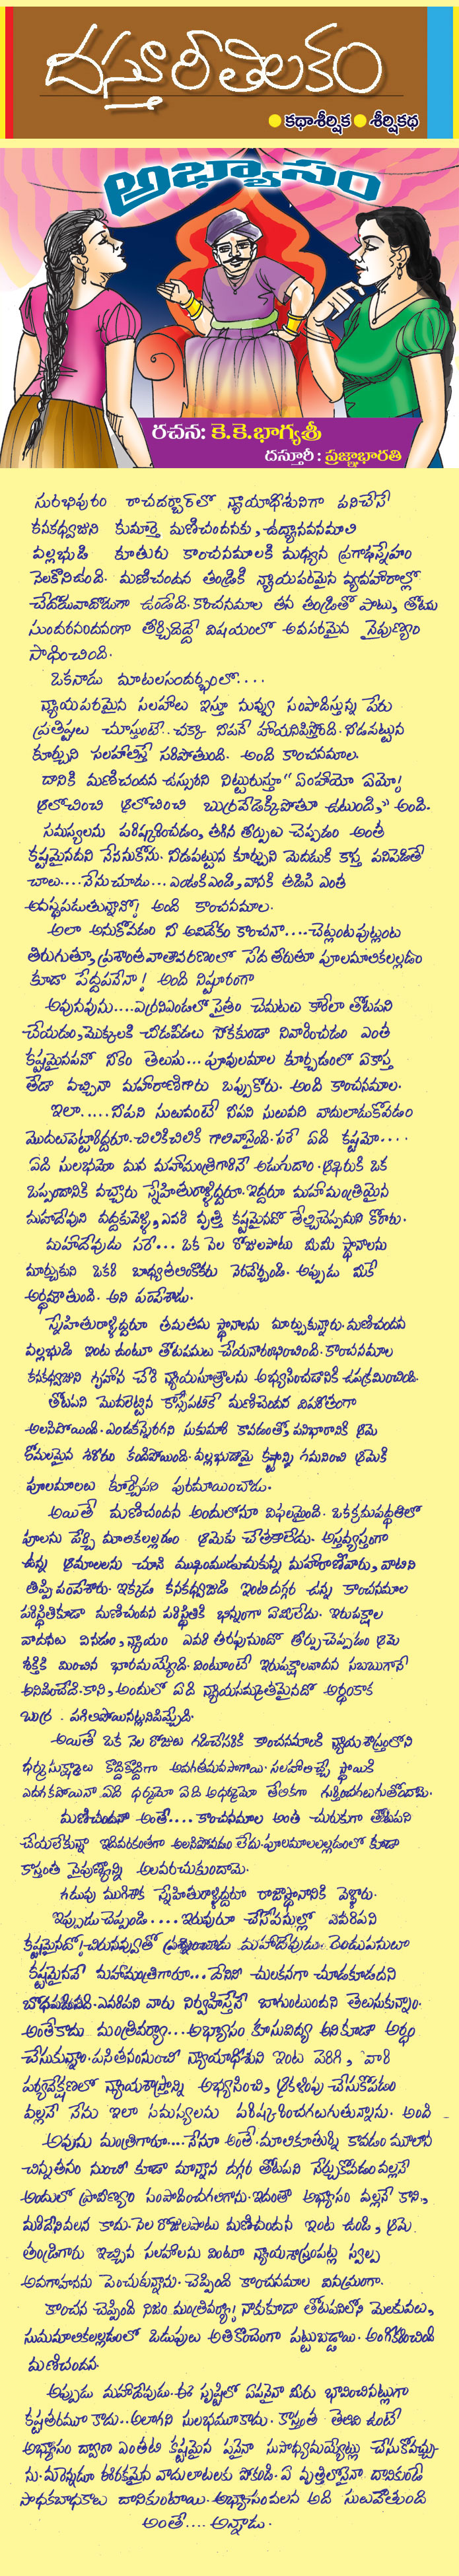 దస్తూరీతిలకం
కథాశీర్షిక
శీర్షికథ
అభ్యాసం
రచన: కె.కె.భాగ్యశ్రీ
దస్తూరీ : ప్రజ్ఞాభారతి
సురభిపురం రాచదర్బార్‌లో న్యాయాధీశునిగా పనిచేసే
కనకధ్వజుని కుమార్తె మణిచందనకు, ఉద్యానవనమాలి
వల్లభుడి కూతురు కాంచనమాలకి మధ్యన ప్రగాఢస్నేహం
నెలకొనిఉంది. మణిచందన తండ్రికి న్యాయపరమైన వ్యవహారాల్లో
చేదోడువాదోడుగా ఉండేది. కాంచనమాల తన తండ్రితో పాటు, తోటను
సుందరనందనంగా తీర్చిదిద్దే విషయంలో అవసరమైన నైపుణ్యం
సాధించింది.
ఒకనాడు మాటలసందర్భంలో....
న్యాయపరమైన సలహాలు ఇస్తూ నువ్వు సంపాదిస్తున్న పేరు
ప్రతిష్టలు చూస్తుంటే.. చక్కా నీపనే హాయనిపిస్తోంది. నీడపట్టున
కూర్చుని సలహాలిస్తే సరిపోతుంది. అంది కాంచనమాల.
దానికి మణిచందన ఉస్సురని నిట్టూరుస్తూ" ఏంహాయో ఏమో!
ఆలోచించి ఆలోచించి బుర్రవేడెక్కిపోతూ ఉటుంది," అంది.
సమస్యలను పరిష్కరించడం, తగిన తీర్పులు చెప్పడం అంత
కష్టమైనదని నేననుకోను. నీడపట్టున కూర్చుని మెదడుకి కాస్త పనిపెడితే
చాలు.... నేనుచూడు... ఎండకిఎండి, వానకి తడిసి ఎంత
అవస్థపడుతున్నానో! అంది కాంచనమాల.
అలా అనుకోవడం నీ అవివేకం కాంచనా.... చెట్లంటపుట్లంట
తిరుగుతూ, ప్రశాంతవాతావరణంలో సేద తీరుతూ పూలమాలికలల్లడం
కూడా పేద్దపనేనా! అంది నిష్టూరంగా
అవునవును....ఎర్రనిఎండలో సైతం చెమటలు కారేలా తోటపని
చేయడం, మొక్కలకి చీడపీడలు సోకకుండా నివారించడం ఎంత
కష్టమైనపనో నీకేం తెలుసు... పూవులమాల కూర్చడంలో ఏకాస్త
తేడా వచ్చినా మహారాణిగారు ఒప్పుకోరు. అంది కాంచనమాల.
ఇలా..... నీపని సులువంటే నీపని సులువని వాదులాడుకోవడం
మొదలుపెట్టారిద్దరూ. చిలికిచిలికి గాలివానైంది. సరే ఏది కష్టమో....
ఏది సులభమో మన మహామంత్రిగారినే అడుగుదాం. ఆఖరుకి ఒక
ఒప్పందానికి వచ్చారు స్నేహితురాళ్ళిద్దరూ. ఇద్దరూ మహామంత్రియైన
మహాదేవుని వద్దకువెళ్ళి, ఎవరి వృత్తి కష్టమైనదో తేల్చిచెప్పమని కోరారు.
మహాదేవుడు సరే... ఒక నెల రోజులపాటు మీమీ స్థానాలను
మార్చుకుని ఒకరి బాధ్యతలింకొకరు నెరవేర్చండి. అప్పుడు మీకే
అర్థమౌతుంది. అని పంపేశాడు.
స్నేహితురాళ్ళిద్దరూ తమతమ స్థానాలను మార్చుకున్నారు. మణిచందన
వల్లభుడి ఇంట ఉంటూ తోటపనులు చేయనారంభించింది. కాంచనమాల
కనకధ్వజుని గృహాన చేరి న్యాయసూత్రాలను అభ్యసించడానికి ఉపక్రమించింది.
తోటపని మొదలెట్టిన కాస్సేపటికే మణిచందన విపరీతంగా
అలసిపోయింది. ఎండకన్నెరగని సుకుమారి కావడంతో, పనిభారానికి ఆమె
కోమలమైన శరీరం కందిపోయింది. వల్లభుడామె కష్టాన్ని గమనించి ఆమెకి
పూలమాలలు కూర్చేపని పురమాయించాడు.
అయితే మణిచందన అందులోనూ విఫలమైంది. ఒకక్రమపద్ధతిలో
పూలను పేర్చి మాలికలల్లడం ఆమెకు చేతకాలేదు. అస్తవ్యస్తంగా
ఉన్న ఆమాలలను చూసి ముఖంముడుచుకున్న మహారాణీవారు, వాటిని
తిప్పి పంపేశారు. ఇక్కడ కనకధ్వజుడి ఇంటిదగ్గర ఉన్న కాంచనమాల
పరిస్థితికూడా మణిచందన పరిస్థితికి భిన్నంగా ఏమీలేదు. ఇరుపక్షాల
వాదనలు వినడం, న్యాయం ఎవరి తరఫునుందో తీర్పుచెప్పడం ఆమె
శక్తికి మించిన భారమయ్యేది. వింటూంటే ఇరుపక్షాలవాదన సబబుగానే
అనిపించేది. కాని, అందులో ఏది న్యాయసమ్మతమైనదో అర్థంకాక
బుర్ర పగిలిపోయినట్లనిపిచ్చేది.
అయితే ఒక నెల రోజులు గడిచేసరికి కాంచనమాలకి న్యాయశాస్త్రంలోని
ధర్మసూక్ష్మాలు కొద్దికొద్దిగా అవగతమవసాగాయి. సలహాలిచ్చే స్థాయికి
ఎదగకపోయినా ఏది ధర్మమో ఏది అధర్మమో తేలికగా గుర్తించగలుగుతోందామె.
మణిచందనా అంతే.... కాంచనమాల అంత చురుకుగా తోటపని
చేయలేకున్నా ఇదివరకంతగా అలసిపోవడం లేదు. పూలమాలలల్లడంలో కూడా
కాస్తంత నైపుణ్యాన్ని అలవరచుకుందామె.
గడువు ముగిశాక స్నేహితురాళ్ళిద్దరూ రాజాస్థానానికి వెళ్ళారు.
ఇప్పుడుచెప్పండి.... ఇరువురూ చేసేపనుల్లో ఎవరిపని
కష్టమైనదో! చిరునవ్వుతో ప్రశ్నించాడు మహాదేవుడు. రెండుపనులూ
కష్టమైనవే మహామంత్రిగారూ... దేనినీ చులకనగా చూడకూడదని
బోధపడినది. ఎవరిపని వారు నిర్వహిస్తేనే బాగుంటుందని తెలుసుకున్నాం.
అంతేకాదు మంత్రివర్యా... అభ్యాసం కూసువిద్య అని కూడా అర్థం
చేసుకున్నాం. పసితనంనుంచీ న్యాయాధీశుని ఇంట పెరిగి, వారి
పర్యవేక్షణలో న్యాయశాస్త్రాన్ని అభ్యసించి, ఆకళింపు చేసుకోవడం
వల్లనే నేను ఇలా సమస్యలను పరిష్కరించగలుగుతున్నాను. అంది
అవును మంత్రిగారూ.... నేనూ అంతే. మాలికూతుర్ని కావడం మూలాన
చిన్నతనం నుంచీ కూడా మాన్నాన దగ్గర తోటపని నేర్చుకోవడం వల్లనే
అందులో ప్రావీణ్యం సంపాదించగలిగాను. ఇదంతా అభ్యాసం వల్లనే కాని,
మరిదేనివలన కాదు. నెల రోజులపాటు మణిచందన ఇంట ఉండి, ఆమె
తండ్రిగారు ఇచ్చిన సలహాలను వింటూ న్యాయశాస్త్రంపట్ల స్వల్ప
అవగాహనను పెంచుకున్నాను. చెప్పింది కాంచనమాల వినమ్రంగా.
కాంచన చెప్పింది నిజం మంత్రివర్యా! నాకుకూడా తోటపనిలోని మెలకువలు,
సుమమాలికలల్లడంలో ఒడుపులు అతికొంచెంగా పట్టుబడ్డాయి. అంగీకరించింది
మణిచందన.
అప్పుడు మహాదేవుడు. ఈ సృష్టిలో ఏపనైనా మీరు భావించినట్లుగా
కష్టతరమూ కాదు.. అలాగని సులభమూకాదు. కాస్తంత తెలివి ఉంటే
అభ్యాసం ద్వారా ఎంతటి కష్టమైన పనైనా సుసాధ్యమయ్యేట్లు చేసుకోవచ్చు
ను. మరెన్నడూ ఈరకమైన వాదులాటలకు పోకండి. ఏ వృత్తిలోనైనా దానికుండే
సాధకబాధకాలు దానికుంటాయి. అభ్యాసంవలన అది సులువౌతుంది
అంతే.... అన్నాడు.